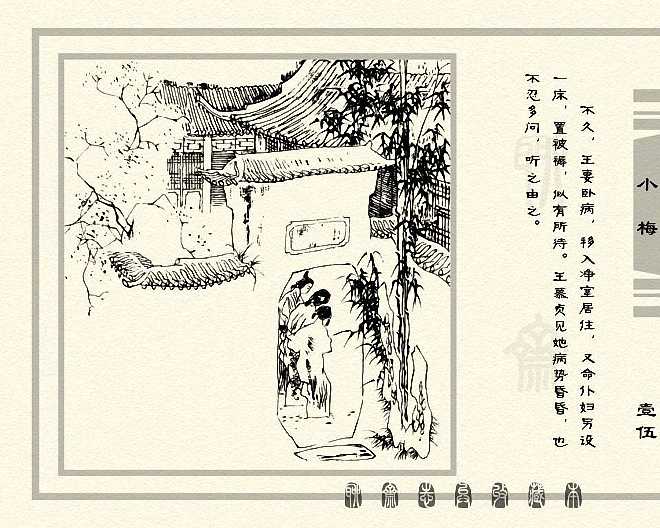 不久，王妻卧病，移入净室居住，又命仆妇另设
一床，置被褥，似有所待。王慕贞见她病势昏昏，也
不忍多问，听之由之。
小梅
壹伍
聊斋志异收藏本